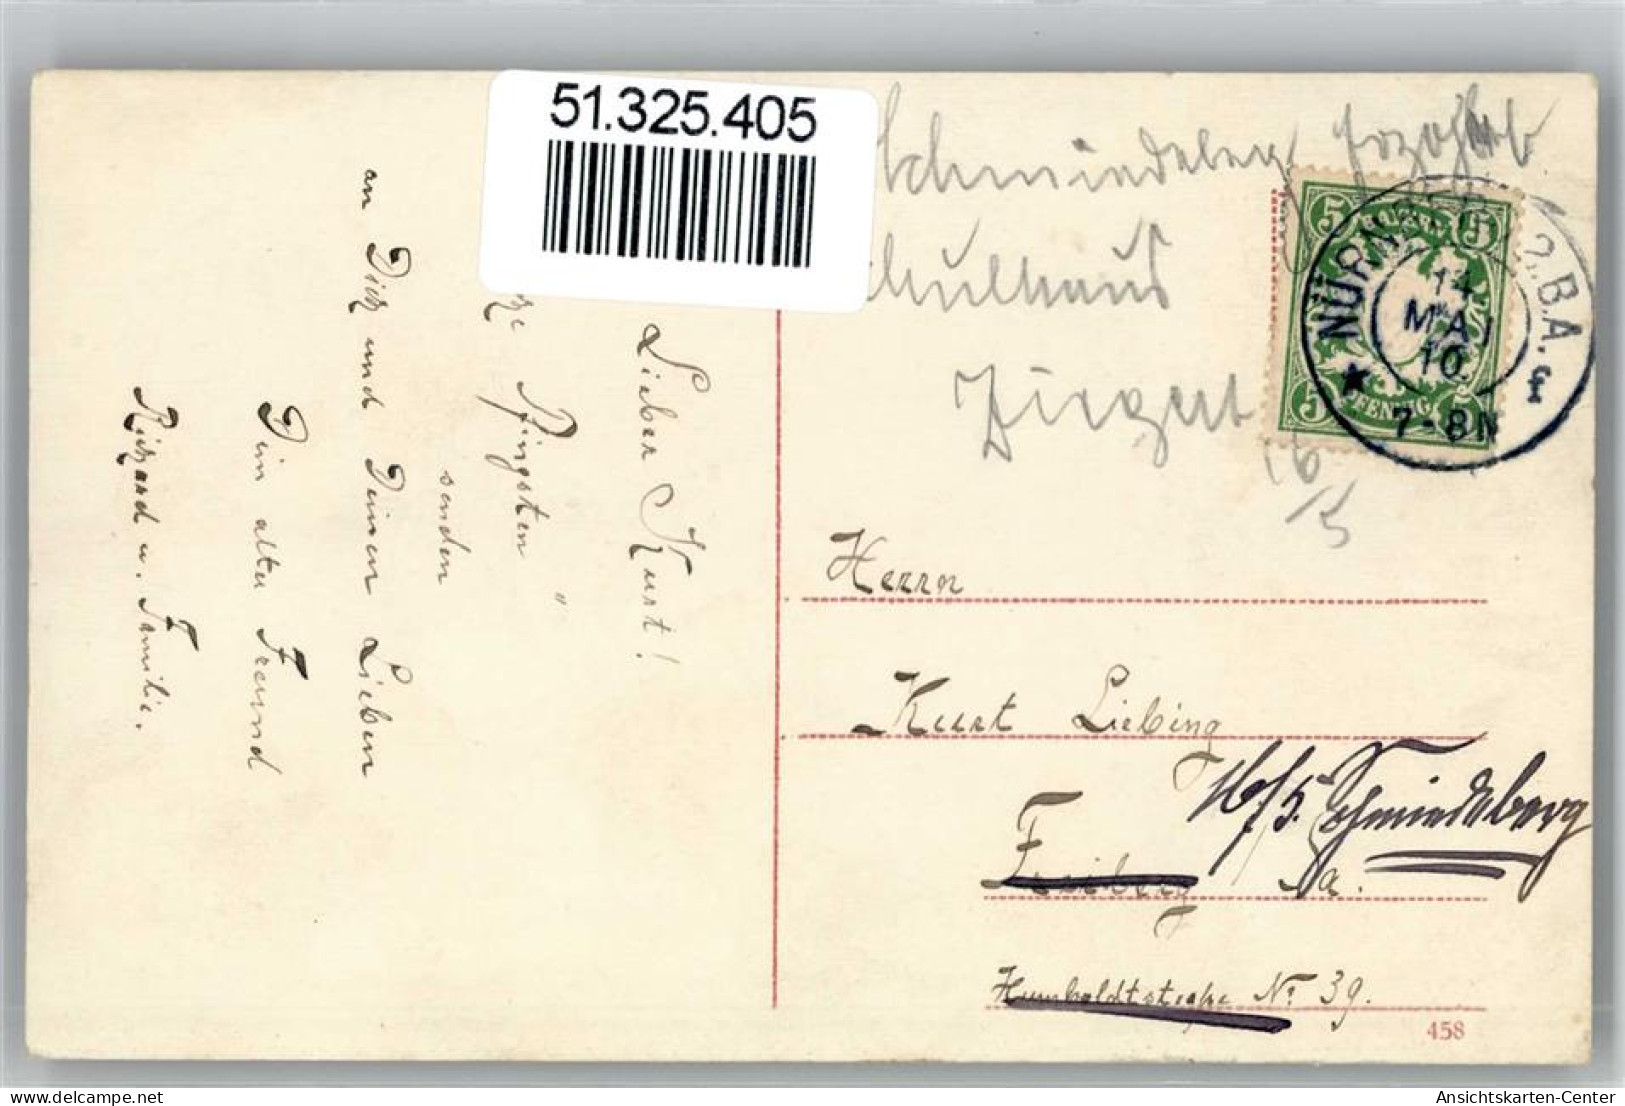 51.325.405
Schmiedeberg Erzgeb
Schulhaus
16/5
5 5
NÜRNBERG 2.B.A. f
14
MAI
10.
7-8N
5 PFENNIG
Lieber Kurt!
Pfingsten
senden "
an Dich und Deinen Lieben
Dein alter Freund
Richard u. Familie.
Herrn
Kurt Liebing
16/5. Schmiedeberg
Freiberg Sa.
Humboldtstraße No 39.
458
AnsichtsKarten-Center
delcampe.net